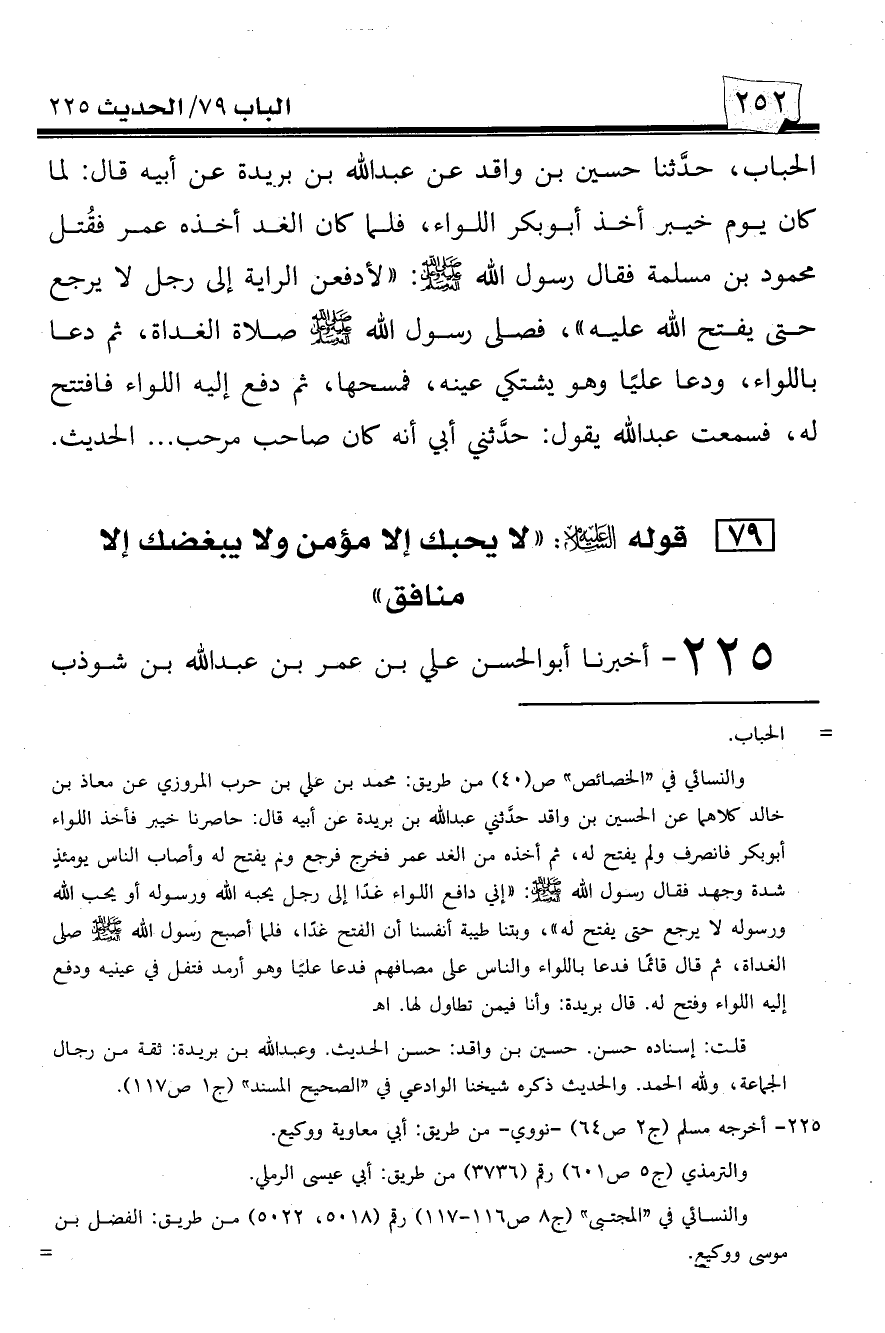 ٢٥٢ الباب ٧٩/ الحديث ٢٢٥
الحباب، حدَّثنا حسين بن واقد عن عبدالله بن بريدة عن أبيه قال: لما
كان يـوم خيـبر أخـذ أبـوبكر اللـواء، فلـما كان الغد أخـذه عمـر فقُتـل
محمود بن مسلمة فقال رسول الله ﷺ: «لأدفعن الراية إلى رجل لا يرجع
حـتى يفـتح الله عليـه»، فصـلى رسـول الله ﷺ صـلاة الغـداة، ثم دعـا
باللواء، ودعا عليًا وهو يشتكي عينه، فمسحها، ثم دفع إليه اللواء فافتتح
له، فسمعت عبدالله يقول: حدَّثني أبي أنه كان صاحب مرحب... الحديث.
٧٩ قوله عليه السلام: «لا يحبك إلا مؤمن ولا يبغضك إلا
منافق»
٢٢٥- أخبرنـا أبوالحسن عـلي بـن عمـر بـن عبـدالله بـن شـوذب
= الحباب.
والنسائي في «الخصائص» ص(٤٠) من طريق: محمد بن علي بن حرب المروزي عن معاذ بن
خالد كلاهما عن الحسين بن واقد حدَّثني عبدالله بن بريدة عن أبيه قال: حاصرنا خيبر فأخذ اللواء
أبوبكر فانصرف ولم يفتح له، ثم أخذه من الغد عمر فخرج فرجع ولم يفتح له وأصاب الناس يومئذٍ
شدة وجهد فقال رسول الله ﷺ: «إني دافع اللواء غدًا إلى رجل يحبه الله ورسوله أو يحب الله
ورسوله لا يرجع حتى يفتح له»، وبتنا طيبة أنفسنا أن الفتح غدًا، فلما أصبح رسول الله ﷺ صلى
الغداة، ثم قال قائمًا فدعا باللواء والناس على مصافهم فدعا عليًا وهو أرمد فتفل في عينيه ودفع
إليه اللواء وفتح له. قال بريدة: وأنا فيمن تطاول لها. اهـ
قلت: إسناده حسن. حسين بن واقد: حسن الحديث. وعبدالله بن بريدة: ثقة من رجال
الجماعة، ولله الحمد. والحديث ذكره شيخنا الوادعي في «الصحيح المسند» (ج١ ص١١٧).
٢٢٥- أخرجه مسلم (ج٢ ص٦٤) -نووي- من طريق: أبي معاوية ووكيع.
والترمذي (ج٥ ص٦٠١) رقم (٣٧٣٦) من طريق: أبي عيسى الرملي.
والنسائي في «المجتبى» (ج٨ ص١١٦-١١٧) رقم (٥٠١٨، ٥٠٢٢) مـن طريق: الفضل بن
موسى ووكيع. =